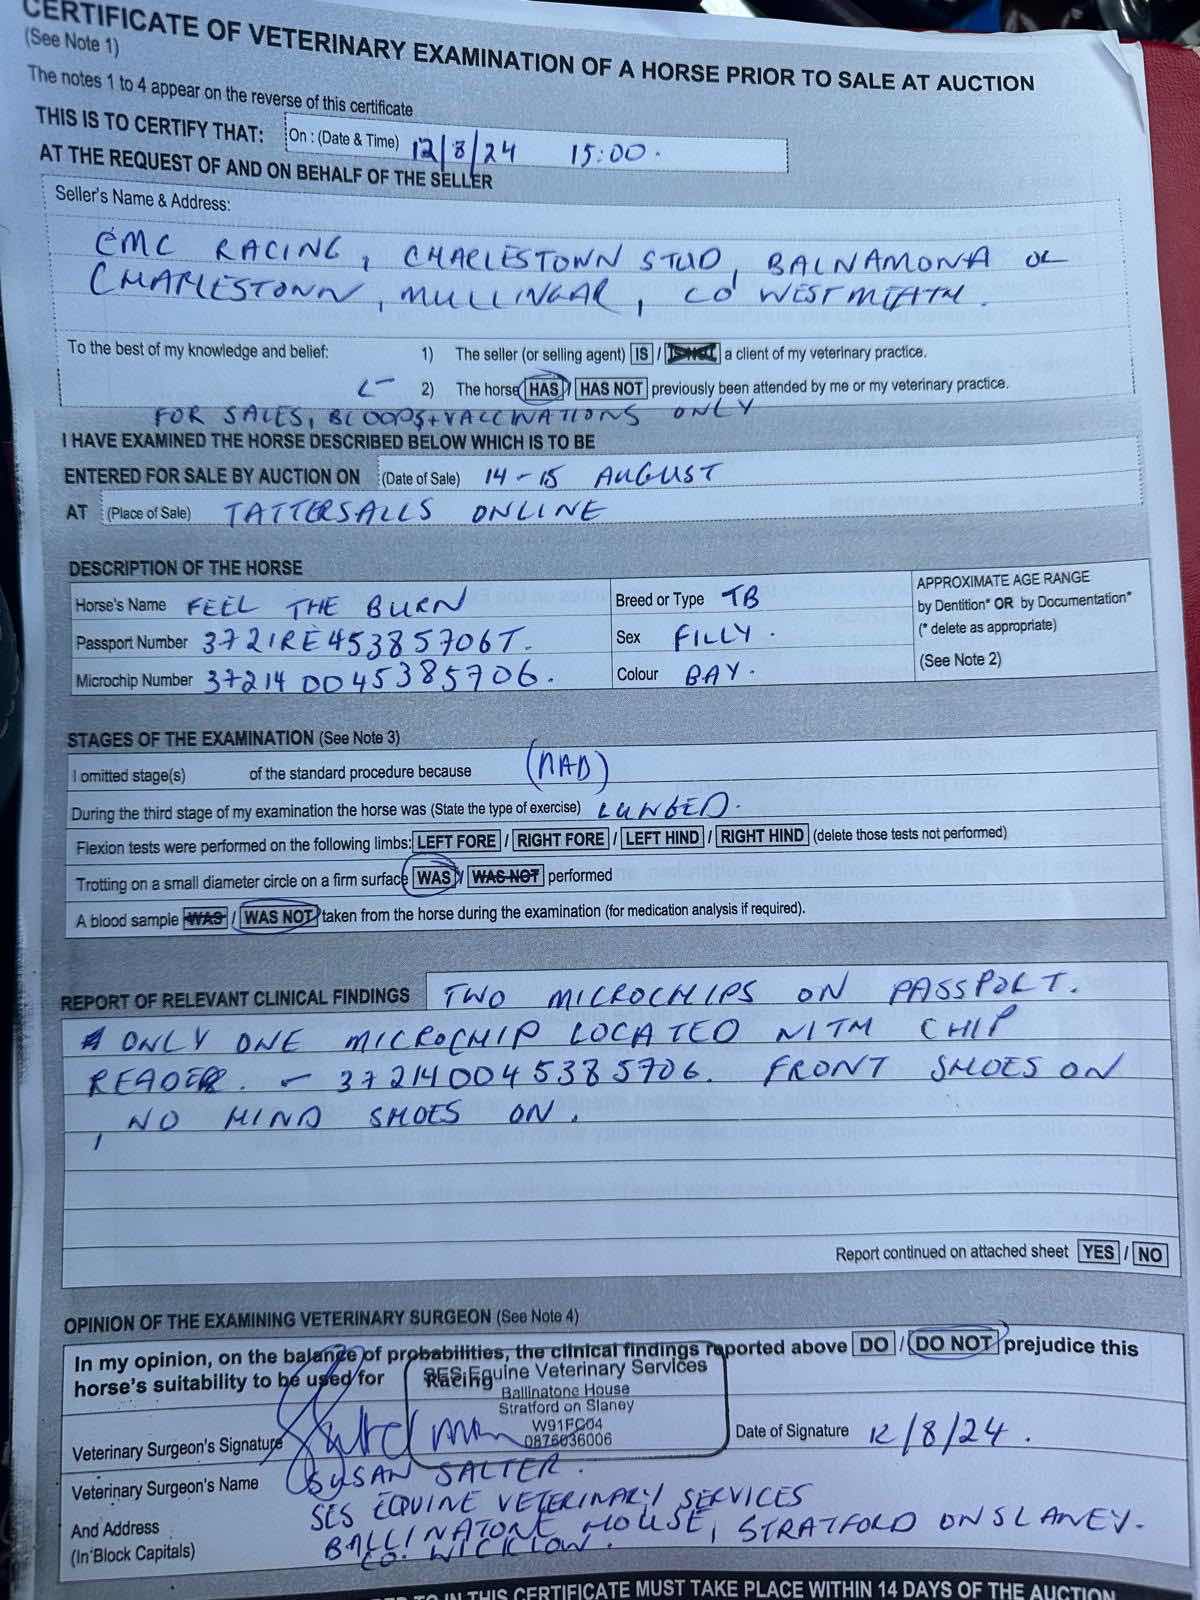 CERTIFICATE OF VETERINARY EXAMINATION OF A HORSE PRIOR TO SALE AT AUCTION
(See Note 1)
The notes 1 to 4 appear on the reverse of this certificate
THIS IS TO CERTIFY THAT: On : (Date & Time) 12/8/24 15:00.
AT THE REQUEST OF AND ON BEHALF OF THE SELLER
Seller's Name & Address:
CMC RACING, CHARLESTOWN STUD, BALNAMONA OR
CHARLESTOWN, MULLINGAR, CO WESTMEATH.
To the best of my knowledge and belief: 1) The seller (or selling agent) IS / IS NOT a client of my veterinary practice.
2) The horse HAS / HAS NOT previously been attended by me or my veterinary practice.
FOR SALES, BLOODS + VACCINATIONS ONLY
I HAVE EXAMINED THE HORSE DESCRIBED BELOW WHICH IS TO BE
ENTERED FOR SALE BY AUCTION ON (Date of Sale) 14 - 15 AUGUST
AT (Place of Sale) TATTERSALLS ONLINE
DESCRIPTION OF THE HORSE
Horse's Name FEEL THE BURN Breed or Type TB APPROXIMATE AGE RANGE
by Dentition* OR by Documentation*
Passport Number 372IRE45385706T. Sex FILLY. (* delete as appropriate)
Microchip Number 372140045385706. Colour BAY. (See Note 2)
STAGES OF THE EXAMINATION (See Note 3)
I omitted stage(s) of the standard procedure because (NAD)
During the third stage of my examination the horse was (State the type of exercise) LUNGED.
Flexion tests were performed on the following limbs: LEFT FORE / RIGHT FORE / LEFT HIND / RIGHT HIND (delete those tests not performed)
Trotting on a small diameter circle on a firm surface WAS / WAS NOT performed
A blood sample WAS / WAS NOT taken from the horse during the examination (for medication analysis if required).
REPORT OF RELEVANT CLINICAL FINDINGS TWO MICROCHIPS ON PASSPORT.
ONLY ONE MICROCHIP LOCATED WITH CHIP
READER - 372140045385706. FRONT SHOES ON
, NO HIND SHOES ON.
Report continued on attached sheet YES / NO
OPINION OF THE EXAMINING VETERINARY SURGEON (See Note 4)
In my opinion, on the balance of probabilities, the clinical findings reported above DO / DO NOT prejudice this
horse's suitability to be used for Racing
SES Equine Veterinary Services
Ballinatone House
Stratford on Slaney
W91FC04
0876036006
Veterinary Surgeon's Signature Date of Signature 12/8/24.
Veterinary Surgeon's Name SUSAN SALTER.
And Address SES EQUINE VETERINARY SERVICES
(In Block Capitals) BALLINATONE HOUSE, STRATFORD ON SLANEY.
CO. WICKLOW.
IN THIS CERTIFICATE MUST TAKE PLACE WITHIN 14 DAYS OF THE AUCTION